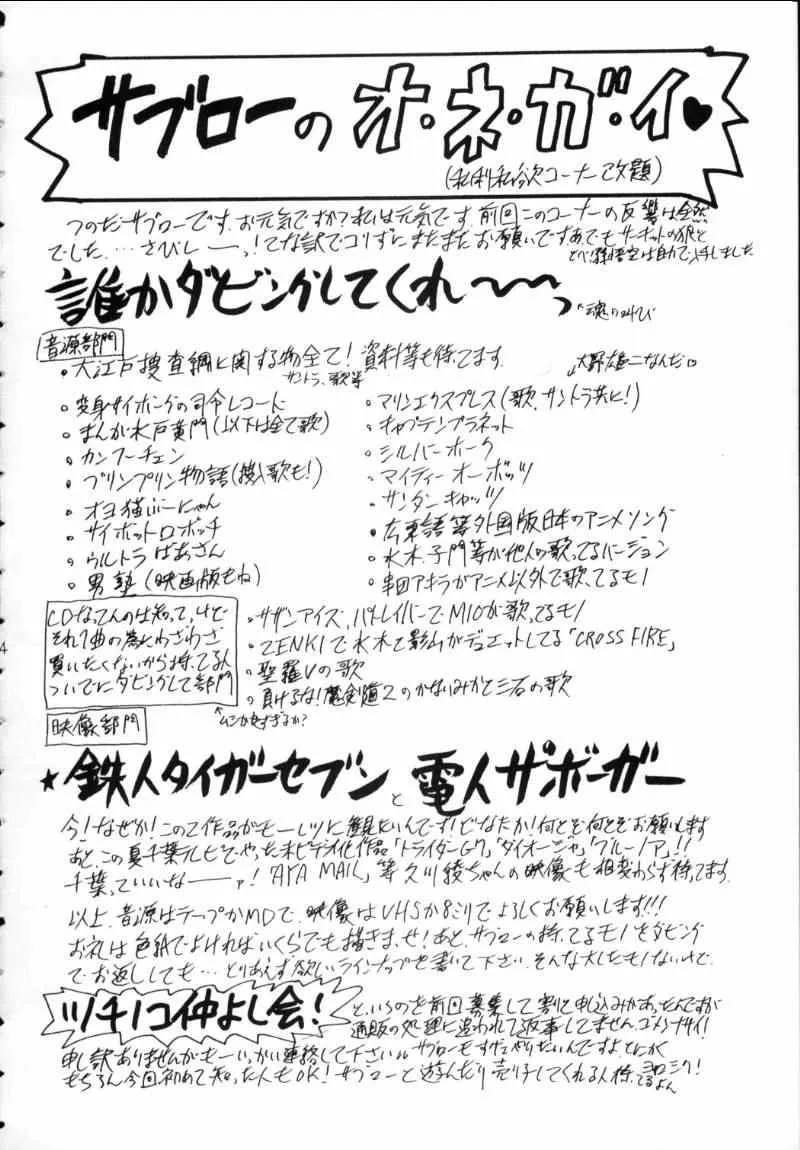 サブローのオ・ネ・ガ・イ♥
(私利私欲コーナー改題)
つのだサブローです。お元気ですか?私は元気です。前回このコーナーの反響は全然
でした....さびしーーっ!てな訳でコリずにまたまたお願いです。あ、でもサーキットの狼と
とべ!孫悟空は自力で入手しました
誰かダビングしてくれ〜〜っ
↖魂の叫び
音源部門
・大江戸捜査網に関する物全て!資料等も待ってます
サントラ、歌等
・変身サイボーグの司令レコード
・まんが水戸黄門(以下は全て歌)
・カンフーチェン
・プリンプリン物語(挿入歌も!)
・オヨネコぶーにゃん
・サイボットロボッチ
・ウルトラばあさん
・男塾(映画版もね)
大野雄二なんだ
・マリンエクスプレス(歌、サントラ共に!)
・キャプテンプラネット
・シルバーホーク
・マイティーオーボッツ
・サンダーキャッツ
・広東語等外国版日本のアニメソング
・水木、子門等が他人の歌ってるバージョン
・串田アキラがアニメ以外で歌ってるモノ
CDなってんのは知ってっけど
それ1曲の為にわざわざ
買いたくないから持ってる人
ついでにダビングして部門
↖ムシが良すぎるか?
・サザンアイズ、パトレイバーでMIOが歌ってるモノ
・ZENKIで水木と影山がデュエットしてる「CROSS FIRE」
・聖羅Vの歌
・負けるな!魔剣道2のかないみかと三石の歌
映像部門
★鉄人タイガーセブンと電人ザボーガー
今!なぜか!この2作品がモーレツに観たいんです!どなたか!何とぞ何とぞお願いします
あと、この夏千葉テレビでやった未ビデオ化作品「トライダーG7」「ダイオージャ」「クルーノア」!!
千葉っていいなーーァ!「AYA MAIL」等久川綾ちゃんの映像も相変わらず待ってます
以上、音源はテープかMDで、映像はVHSか8ミリでよろしくお願いします!!!
お礼は色紙でよければいくらでも描きまっせ!あと、サブローの持ってるモノをダビング
でお返ししても…とりあえず欲しいラインナップを書いて下さい。そんな大したモノないけど
ツチノコ仲よし会!
というのを前回募集して割と申し込みがあったんですが
通販の処理に追われて返事してません。ゴメンナサイ!
申し訳ありませんがもーいっかい連絡して下さい。サブローもすげェやりたいんですよ。とにかく
もちろん今回初めて知った人もOK!サブローと遊んだり売り子してくれる人待ってるよん
ヨロシク!
4